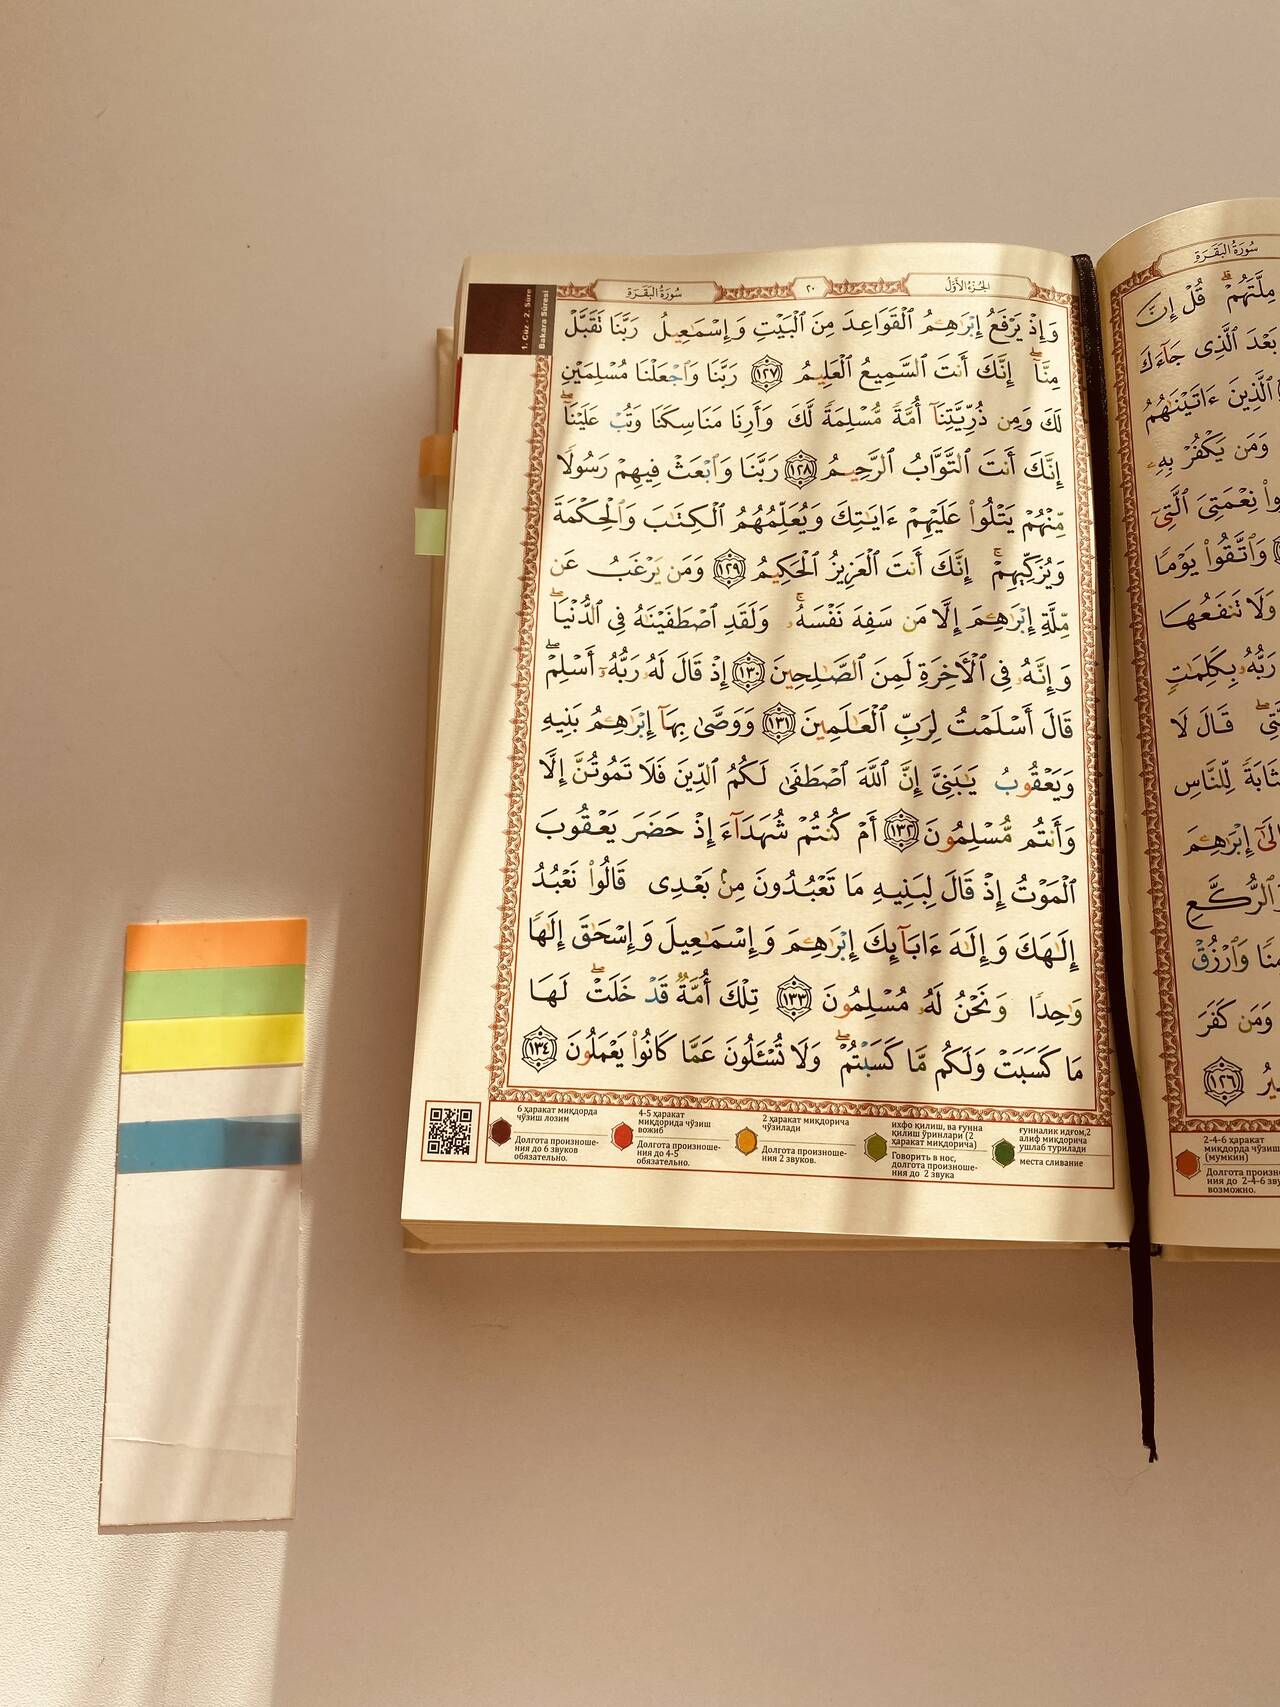 سُورَةُ البَقَرَةِ
مِلَّتَهُمْ ۗ قُلْ إِنَّ
بَعْدَ ٱلَّذِى جَآءَكَ
ٱلَّذِينَ ءَاتَيْنَٰهُمُ
وَمَن يَكْفُرْ بِهِۦ
نِعْمَتِىَ ٱلَّتِىٓ
وَٱتَّقُوا۟ يَوْمًا
وَلَا تَنفَعُهَا
رَبُّهُۥ بِكَلِمَٰتٍ
قَالَ لَا
لِّلنَّاسِ
إِبْرَٰهِۦمَ
وَٱلرُّكَّعِ
وَٱرْزُقْ
وَمَن كَفَرَ
١٢٦
2-4-6 ҳаракат
миқдорда чўзиш
(мумкин)
Долгота произно
ния до 2-4-6
возможно.
1. Cüz - 2. Sûre
Bakara Sûresi
الجُزءُ الأَوَّلُ
٢٠
سُورَةُ البَقَرَةِ
وَإِذْ يَرْفَعُ إِبْرَٰهِۦمُ ٱلْقَوَاعِدَ مِنَ ٱلْبَيْتِ وَإِسْمَٰعِيلُ رَبَّنَا تَقَبَّلْ
مِنَّآ ۖ إِنَّكَ أَنتَ ٱلسَّمِيعُ ٱلْعَلِيمُ ١٢٧ رَبَّنَا وَٱجْعَلْنَا مُسْلِمَيْنِ
لَكَ وَمِن ذُرِّيَّتِنَآ أُمَّةً مُّسْلِمَةً لَّكَ وَأَرِنَا مَنَاسِكَنَا وَتُبْ عَلَيْنَآ ۖ
إِنَّكَ أَنتَ ٱلتَّوَّابُ ٱلرَّحِيمُ ١٢٨ رَبَّنَا وَٱبْعَثْ فِيهِمْ رَسُولًا
مِّنْهُمْ يَتْلُوا۟ عَلَيْهِمْ ءَايَٰتِكَ وَيُعَلِّمُهُمُ ٱلْكِتَٰبَ وَٱلْحِكْمَةَ
وَيُزَكِّيهِمْ ۚ إِنَّكَ أَنتَ ٱلْعَزِيزُ ٱلْحَكِيمُ ١٢٩ وَمَن يَرْغَبُ عَن
مِّلَّةِ إِبْرَٰهِۦمَ إِلَّا مَن سَفِهَ نَفْسَهُۥ ۚ وَلَقَدِ ٱصْطَفَيْنَٰهُ فِى ٱلدُّنْيَا ۖ
وَإِنَّهُۥ فِى ٱلْأَخِرَةِ لَمِنَ ٱلصَّٰلِحِينَ ١٣٠ إِذْ قَالَ لَهُۥ رَبُّهُۥٓ أَسْلِمْ ۖ
قَالَ أَسْلَمْتُ لِرَبِّ ٱلْعَٰلَمِينَ ١٣١ وَوَصَّىٰ بِهَآ إِبْرَٰهِۦمُ بَنِيهِ
وَيَعْقُوبُ يَٰبَنِىَّ إِنَّ ٱللَّهَ ٱصْطَفَىٰ لَكُمُ ٱلدِّينَ فَلَا تَمُوتُنَّ إِلَّا
وَأَنتُم مُّسْلِمُونَ ١٣٢ أَمْ كُنتُمْ شُهَدَآءَ إِذْ حَضَرَ يَعْقُوبَ
ٱلْمَوْتُ إِذْ قَالَ لِبَنِيهِ مَا تَعْبُدُونَ مِنۢ بَعْدِى قَالُوا۟ نَعْبُدُ
إِلَٰهَكَ وَإِلَٰهَ ءَابَآئِكَ إِبْرَٰهِۦمَ وَإِسْمَٰعِيلَ وَإِسْحَٰقَ إِلَٰهًا
وَٰحِدًا وَنَحْنُ لَهُۥ مُسْلِمُونَ ١٣٣ تِلْكَ أُمَّةٌ قَدْ خَلَتْ ۖ لَهَا
مَا كَسَبَتْ وَلَكُم مَّا كَسَبْتُمْ ۖ وَلَا تُسْـَٔلُونَ عَمَّا كَانُوا۟ يَعْمَلُونَ ١٣٤
6 ҳаракат миқдорда
чўзиш лозим
Долгота произноше-
ния до 6 звуков
обязательно.
4-5 ҳаракат
миқдорида чўзиш
вожиб
Долгота произноше-
ния до 4-5
обязательно.
2 ҳаракат миқдорича
чўзилади
Долгота произноше-
ния 2 звуков.
ихфо қилиш, ва ғунна
қилиш ўринлари (2
ҳаракат миқдорича)
Говорить в нос,
долгота произноше-
ния до 2 звука
ғунналик идғом,2
алиф миқдорича
ушлаб турилади
места сливание